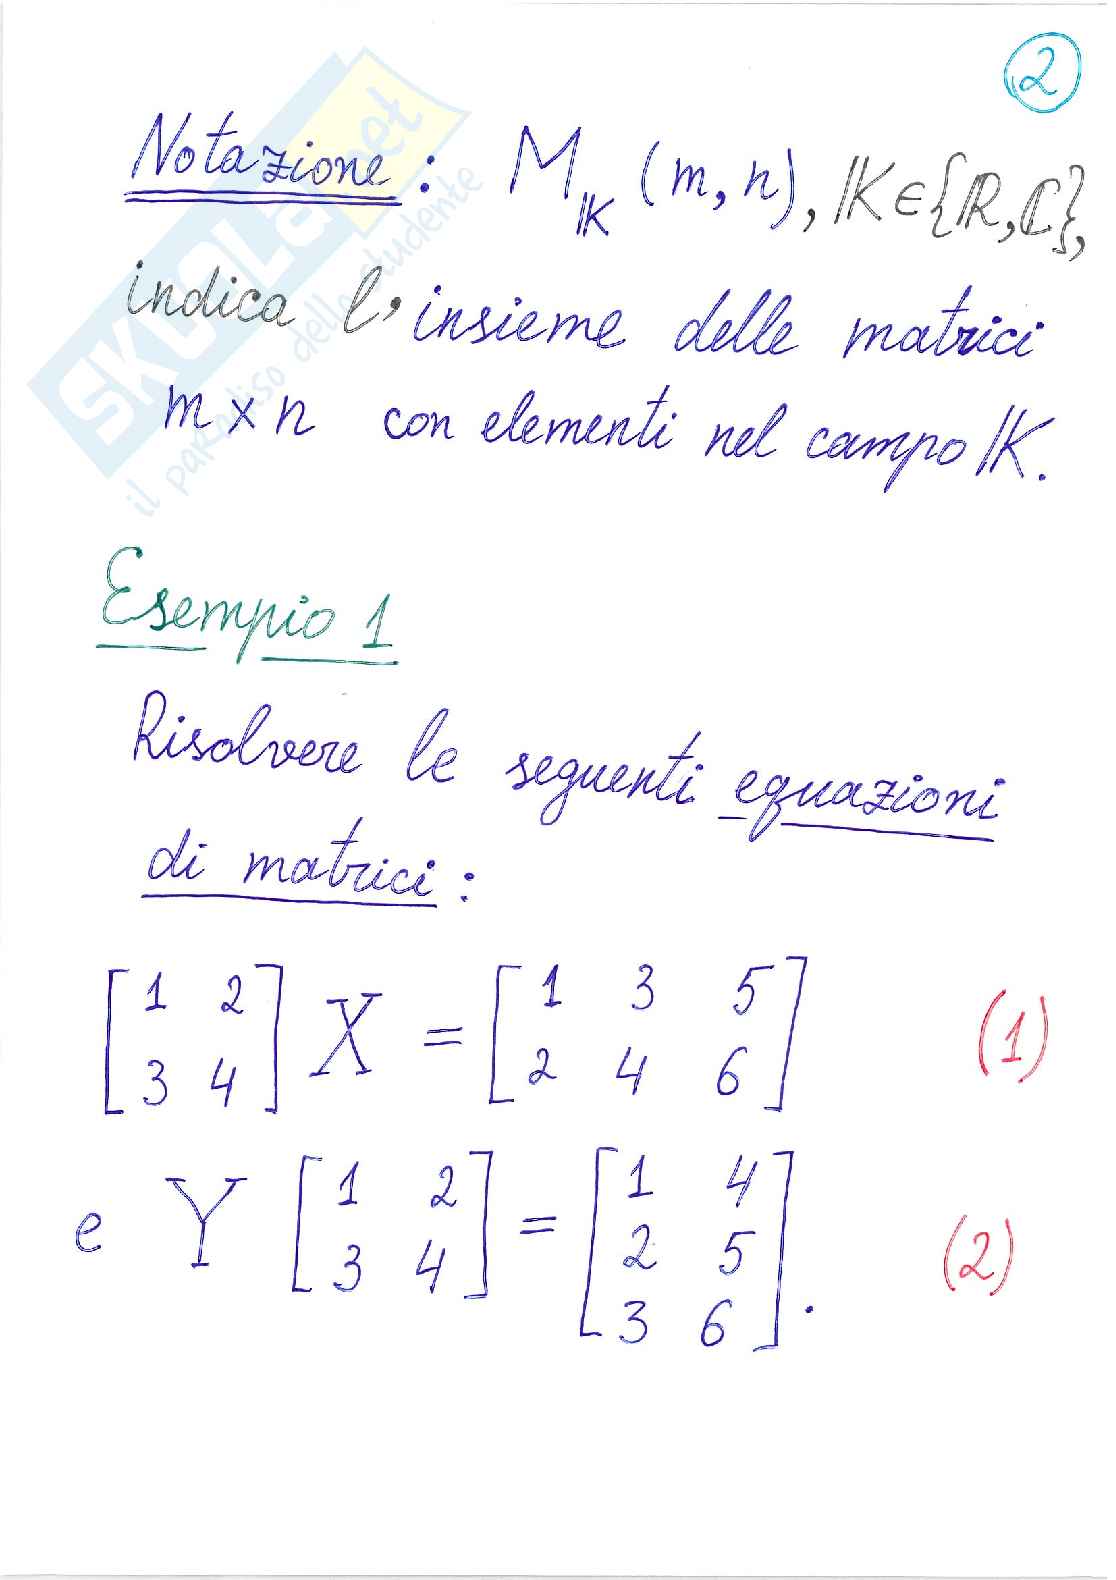 2
Notazione: M_𝕂 (m, n), 𝕂∈{ℝ,ℂ},
indica l'insieme delle matrici
m × n con elementi nel campo 𝕂.
Esempio 1
Risolvere le seguenti equazioni
di matrici:
[1 2
3 4] X = [1 3 5
2 4 6] (1)
e Y [1 2
3 4] = [1 4
2 5
3 6]. (2)
SKUOLA.net
il paradiso dello studente